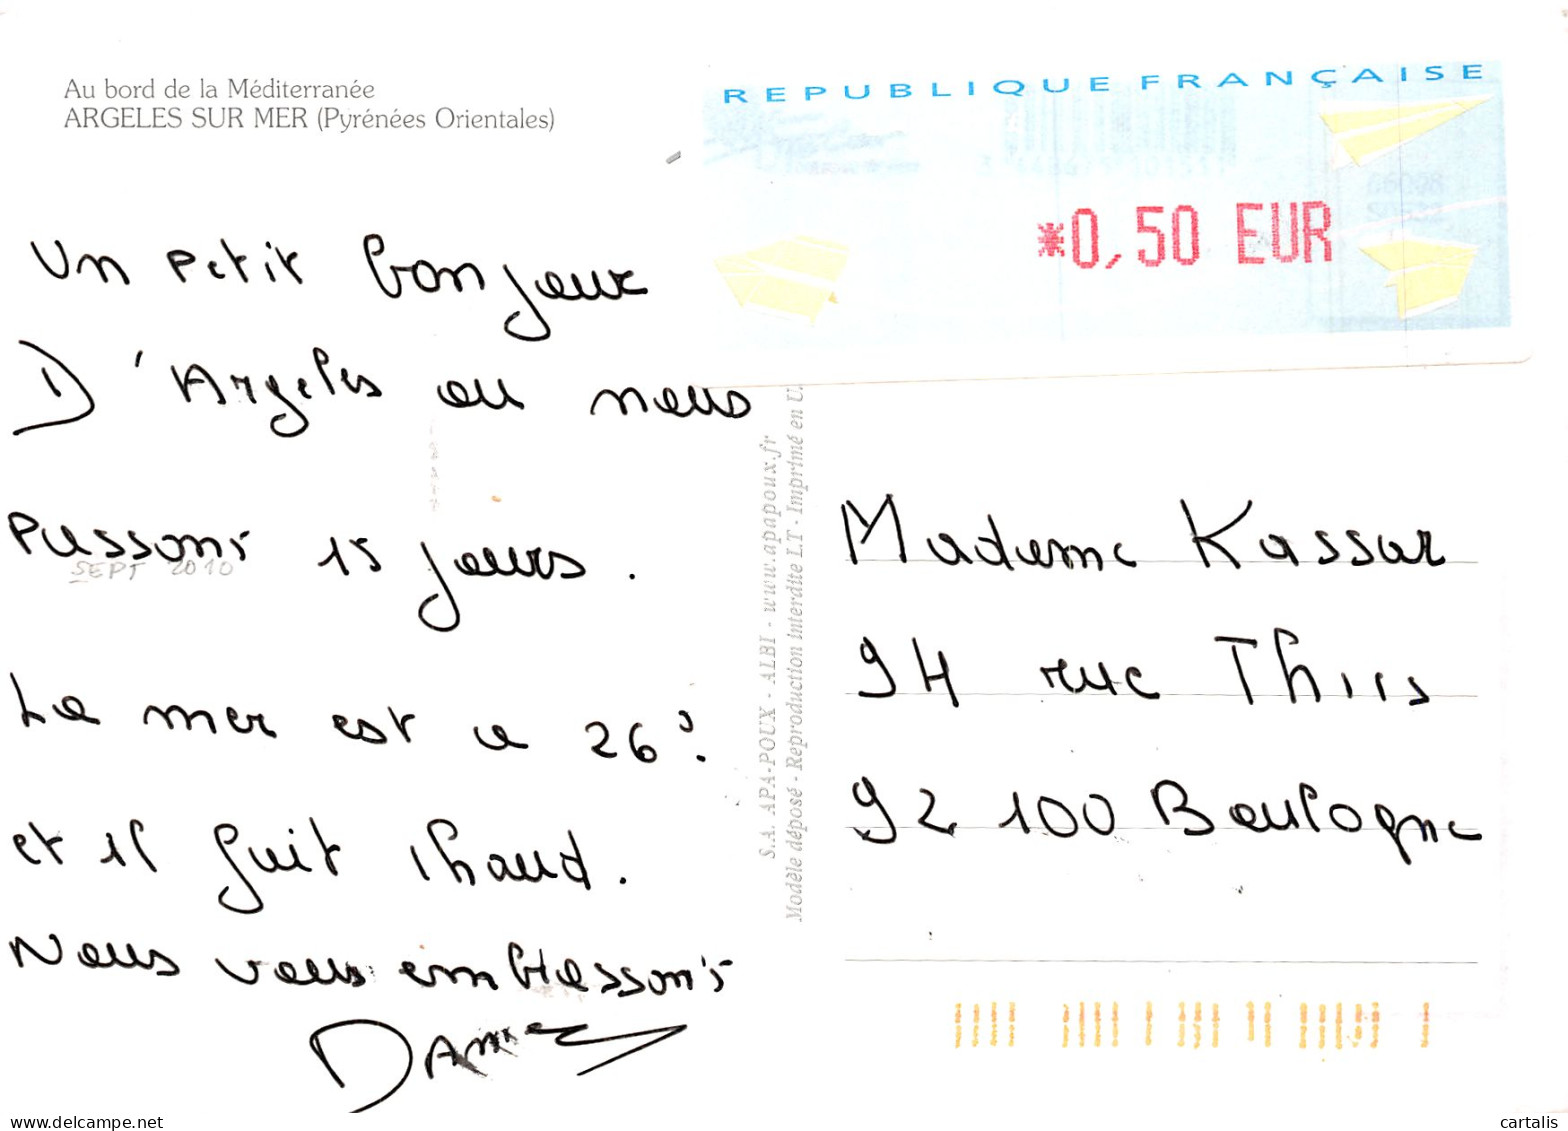 Au bord de la Méditerranée
ARGELES SUR MER (Pyrénées Orientales)
REPUBLIQUE FRANÇAISE
*0,50 EUR
Un petit bonjour
D'Argelès ou nous
passons 15 jours.
SEPT 2010
La mer est a 26°.
et il fait chaud.
Nous vous embrassons
S.A. APA-POUX - ALBI - www.apapoux.fr
Modèle déposé - Reproduction interdite LT - Imprimé en U.
Madame Kassar
94 rue Thiers
92 100 Boulogne
delcampe.net
cartalis